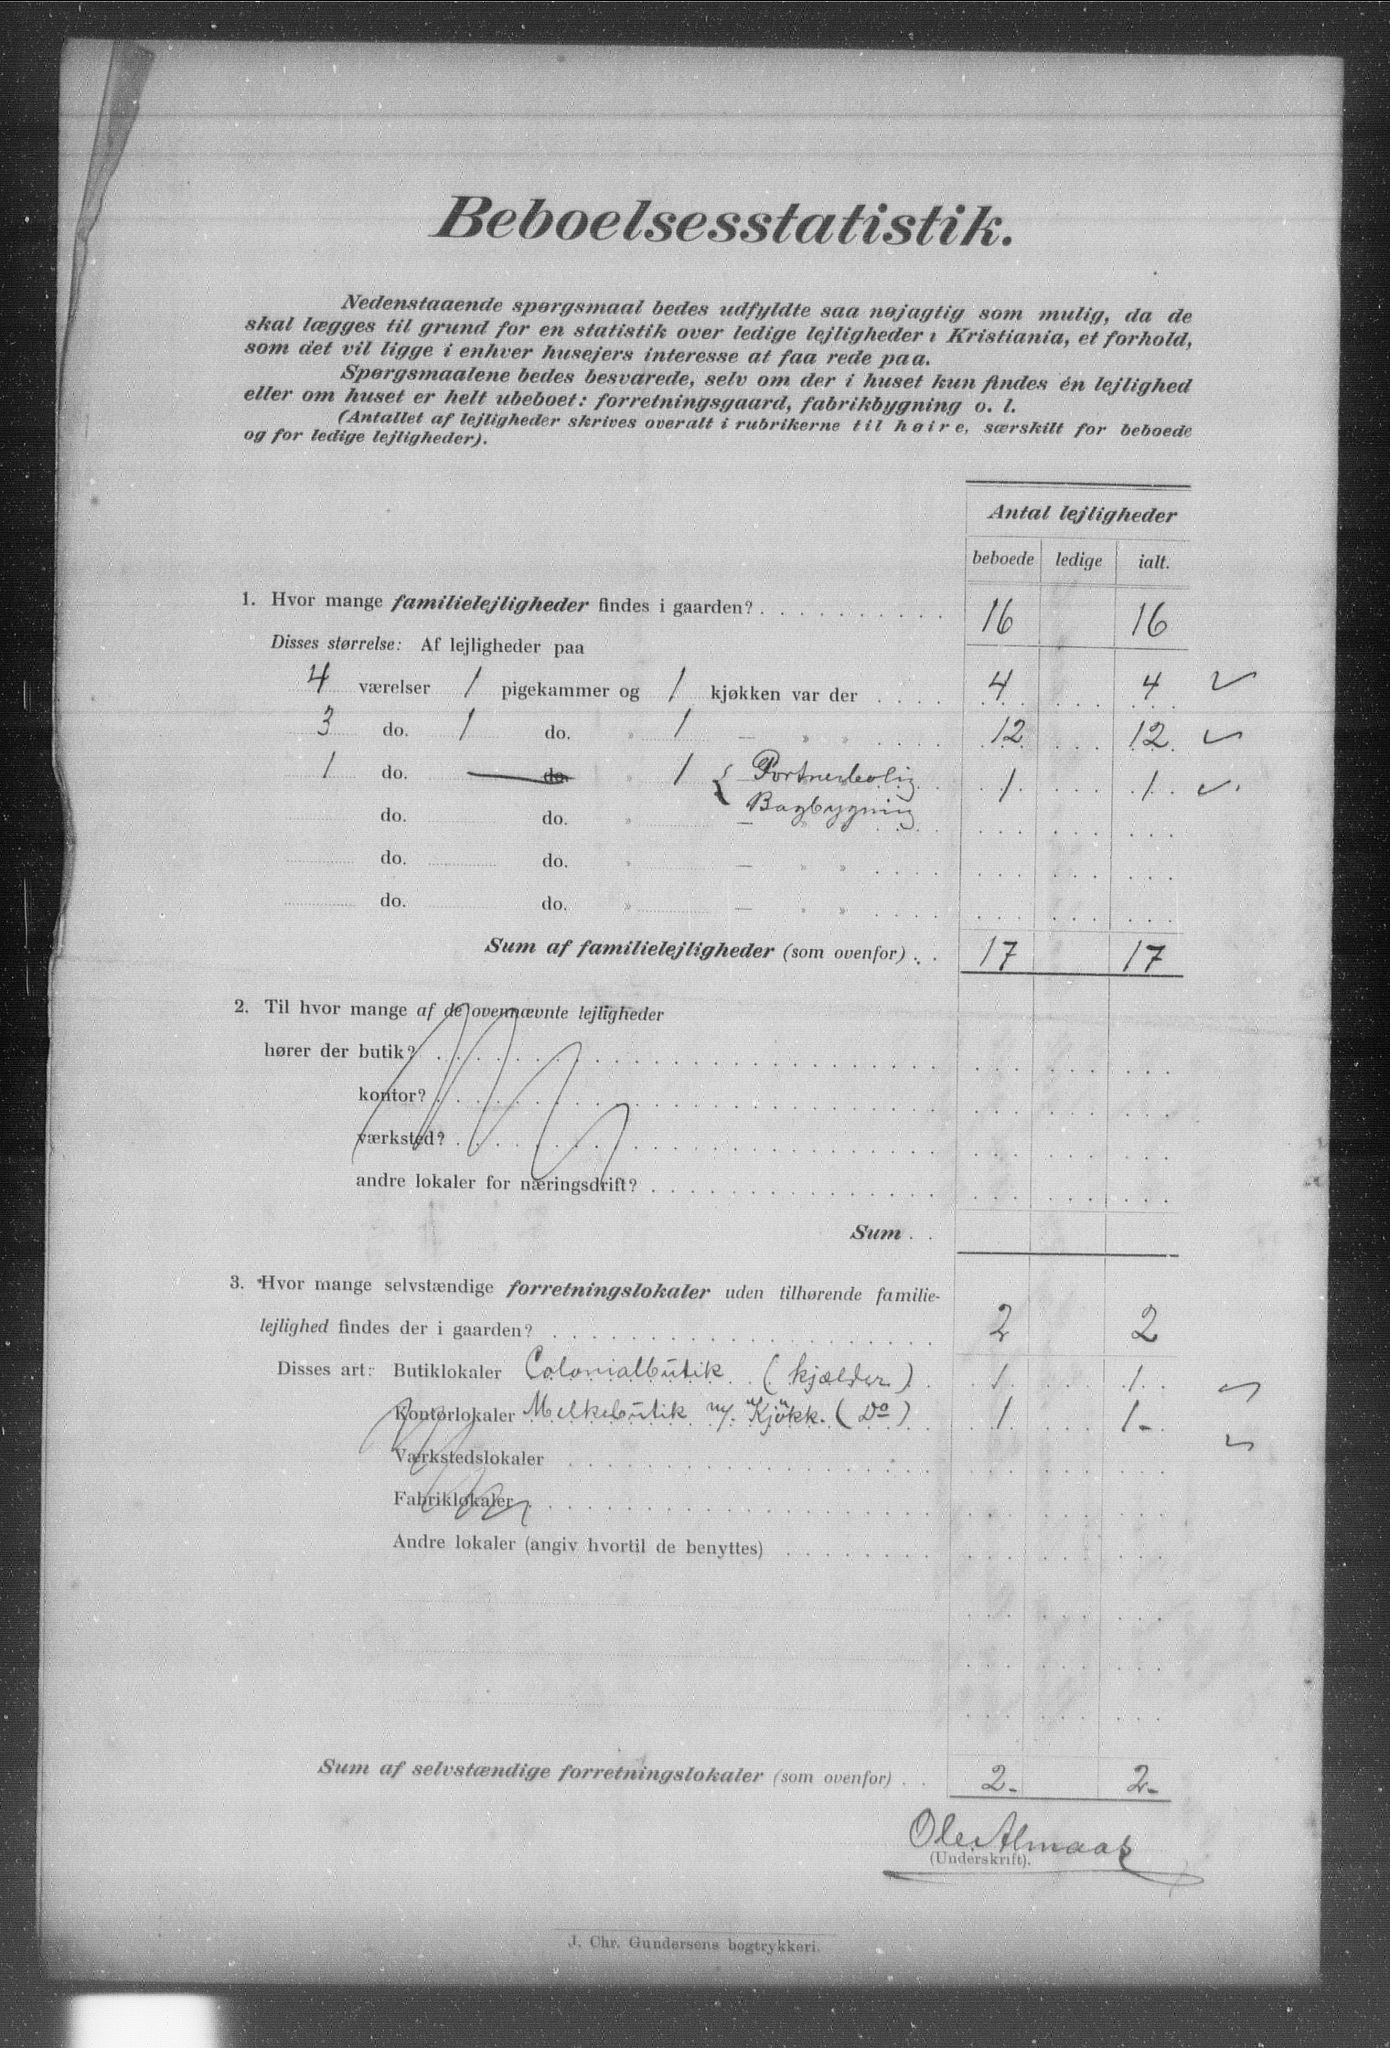 Beboelsesstatistik.
Nedenstaaende spørgsmaal bedes udfyldte saa nøjagtig som mulig, da de
skal lægges til grund for en statistik over ledige lejligheder i Kristiania, et forhold,
som det vil ligge i enhver husejers interesse at faa rede paa.
Spørgsmaalene bedes besvarede, selv om der i huset kun findes én lejlighed
eller om huset er helt ubeboet: forretningsgaard, fabrikbygning o. l.
(Antallet af lejligheder skrives overalt i rubrikerne til høire, særskilt for beboede
og for ledige lejligheder).
Antal lejligheder
beboede ledige ialt.
1. Hvor mange familielejligheder findes i gaarden? . 16 16
Disses størrelse: Af lejligheder paa
4 værelser 1 pigekammer og 1 kjøkken var der 4 4
3 do. 1 do. » 1 — » » 12 12
1 do. do. » 1 { Portnerbolig 1 1
do. do. » — Bagbygning
do. do. » — » »
do. do. » — » »
Sum af familielejligheder (som ovenfor) . . 17 17
2. Til hvor mange af de ovennævnte lejligheder
hører der butik?
kontor?
værksted?
andre lokaler for næringsdrift?
Sum . .
3. Hvor mange selvstændige forretningslokaler uden tilhørende familie-
lejlighed findes der i gaarden? 2 2
Disses art: Butiklokaler Colonialbutik (kjælder) 1 1
Kontorlokaler Melkebutik m/. Kjøkk. (Do) 1 1-
Værkstedslokaler
Fabriklokaler
Andre lokaler (angiv hvortil de benyttes)
Sum af selvstændige forretningslokaler (som ovenfor) . . 2- 2-
Ole Almaas
(Underskrift).
J. Chr. Gundersens bogtrykkeri.